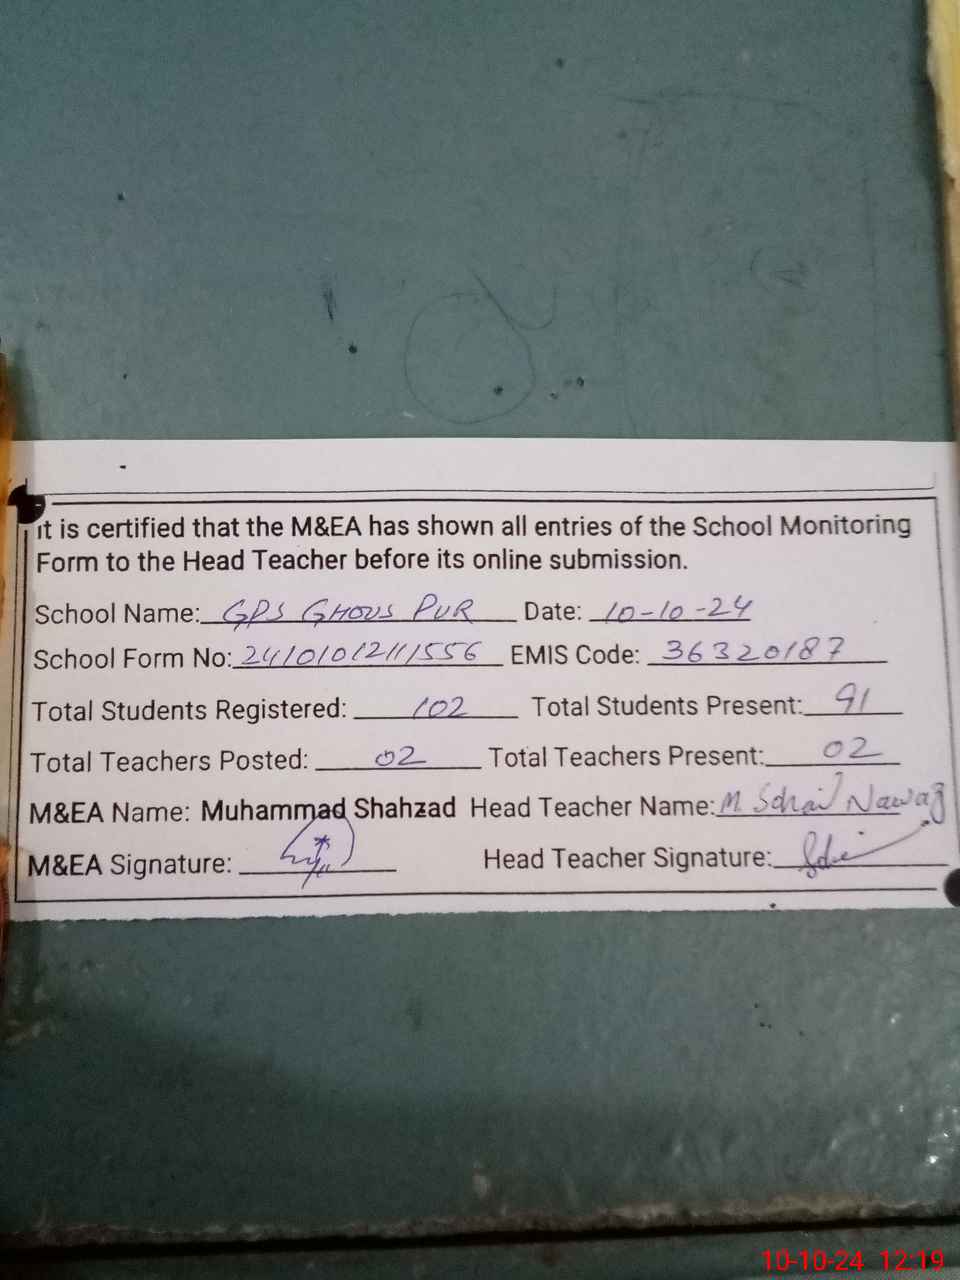 It is certified that the M&EA has shown all entries of the School Monitoring
Form to the Head Teacher before its online submission.
School Name: GPS GHOUS PUR Date: 10-10-24
School Form No: 24101012111556 EMIS Code: 36320187
Total Students Registered: 102 Total Students Present: 91
Total Teachers Posted: 02 Total Teachers Present: 02
M&EA Name: Muhammad Shahzad Head Teacher Name: M Sohail Nawaz
M&EA Signature: Head Teacher Signature:
10-10-24 12:19